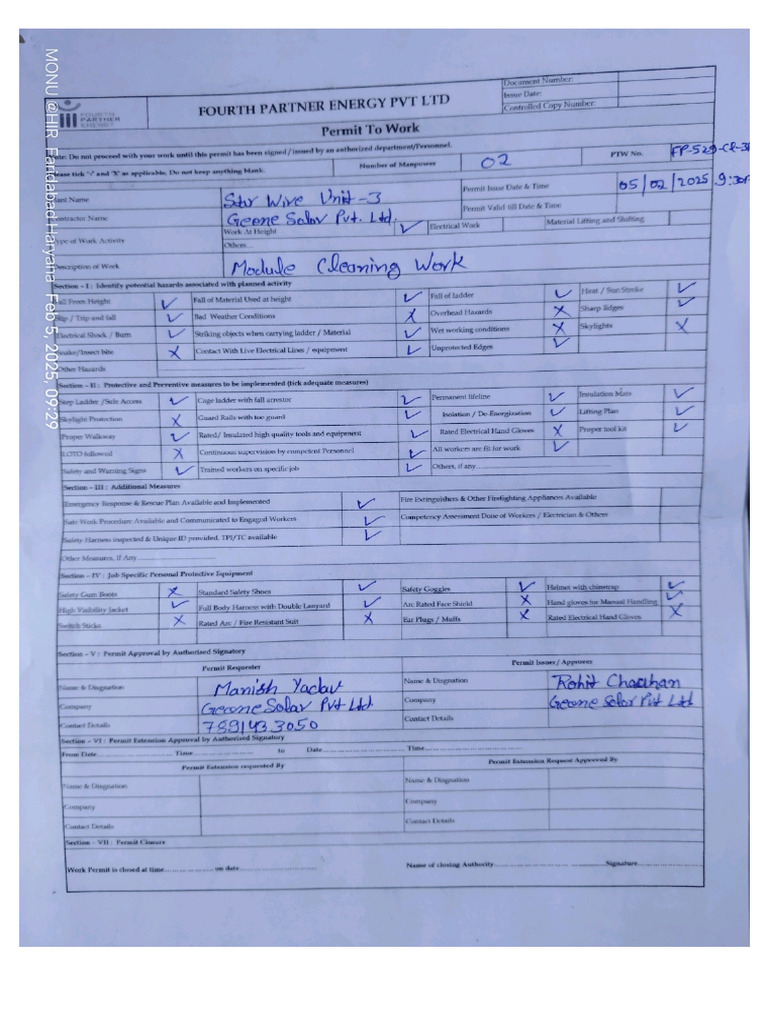 MONU @HIR Faridabad Haryana Feb 5, 2025, 09:29
FOURTH PARTNER ENERGY
FOURTH PARTNER ENERGY PVT LTD
Document Number:
Issue Date:
Controlled Copy Number:
Permit To Work
Note: Do not proceed with your work until this permit has been signed / issued by an authorized department/Personnel.
Please tick '√' and 'X' as applicable. Do not keep anything blank. Number of Manpower 02 PTW No. FP-529-CL-
Plant Name Star Wire Unit-3 Permit Issue Date & Time 05/02/2025 9:30
Contractor Name Geone Solar Pvt. Ltd. Permit Valid till Date & Time
Type of Work Activity Work At Height ✓ Electrical Work Material Lifting and Shifting
Others...
Description of Work Module Cleaning Work
Section - I : Identify potential hazards associated with planned activity
Fall From Height ✓ Fall of Material Used at height ✓ Fall of ladder ✓ Heat / Sun Stroke ✓
Slip / Trip and fall ✓ Bad Weather Conditions X Overhead Hazards X Sharp Edges ✓
Electrical Shock / Burn ✓ Striking objects when carrying ladder / Material ✓ Wet working conditions X Skylights X
Snake/Insect bite X Contact With Live Electrical Lines / equipment ✓ Unprotected Edges ✓
Other Hazards
Section - II : Protective and Preventive measures to be implemented (tick adequate measures)
Step Ladder /Safe Access ✓ Cage ladder with fall arrestor ✓ Permanent lifeline ✓ Insulation Mats ✓
Skylight Protection X Guard Rails with toe guard ✓ Isolation / De-Energization ✓ Lifting Plan ✓
Proper Walkway ✓ Rated/ Insulated high quality tools and equipment ✓ Rated Electrical Hand Gloves X Proper tool kit ✓
LOTO followed X Continuous supervision by competent Personnel ✓ All workers are fit for work ✓
Safety and Warning Signs ✓ Trained workers on specific job ✓ Others, if any
Section - III : Additional Measures
Emergency Response & Rescue Plan Available and Implemented ✓ Fire Extinguishers & Other Firefighting Appliances Available
Safe Work Procedure Available and Communicated to Engaged Workers ✓ Competency Assessment Done of Workers / Electrician & Others
Safety Harness inspected & Unique ID provided, TPI/TC available ✓
Other Measures, If Any
Section - IV : Job Specific Personal Protective Equipment
Safety Gum Boots X Standard Safety Shoes ✓ Safety Goggles ✓ Helmet with chinstrap ✓
High Visibility Jacket ✓ Full Body Harness with Double Lanyard ✓ Arc Rated Face Shield X Hand gloves for Manual Handling ✓
Switch Sticks X Rated Arc / Fire Resistant Suit X Ear Plugs / Muffs X Rated Electrical Hand Gloves X
Section - V : Permit Approval by Authorised Signatory
Permit Requester Permit Issuer/ Approver
Name & Disgnation Manish Yadav Name & Disgnation Rohit Chauhan
Company Geone Solar Pvt Ltd Company Geone Solar Pvt Ltd
Contact Details 7891433050 Contact Details
Section - VI : Permit Extension Approval by Authorised Signatory
From Date Time to Date Time
Permit Extension requested By Permit Extension Request Approved By
Name & Disgnation Name & Disgnation
Company Company
Contact Details Contact Details
Section - VII : Permit Closure
Work Permit is closed at time on date Name of closing Authority Signature